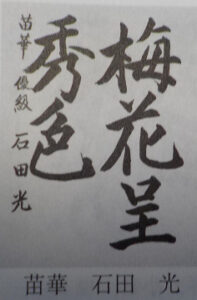 梅花呈
秀色
苗華 優級 石田光
苗華 石田 光